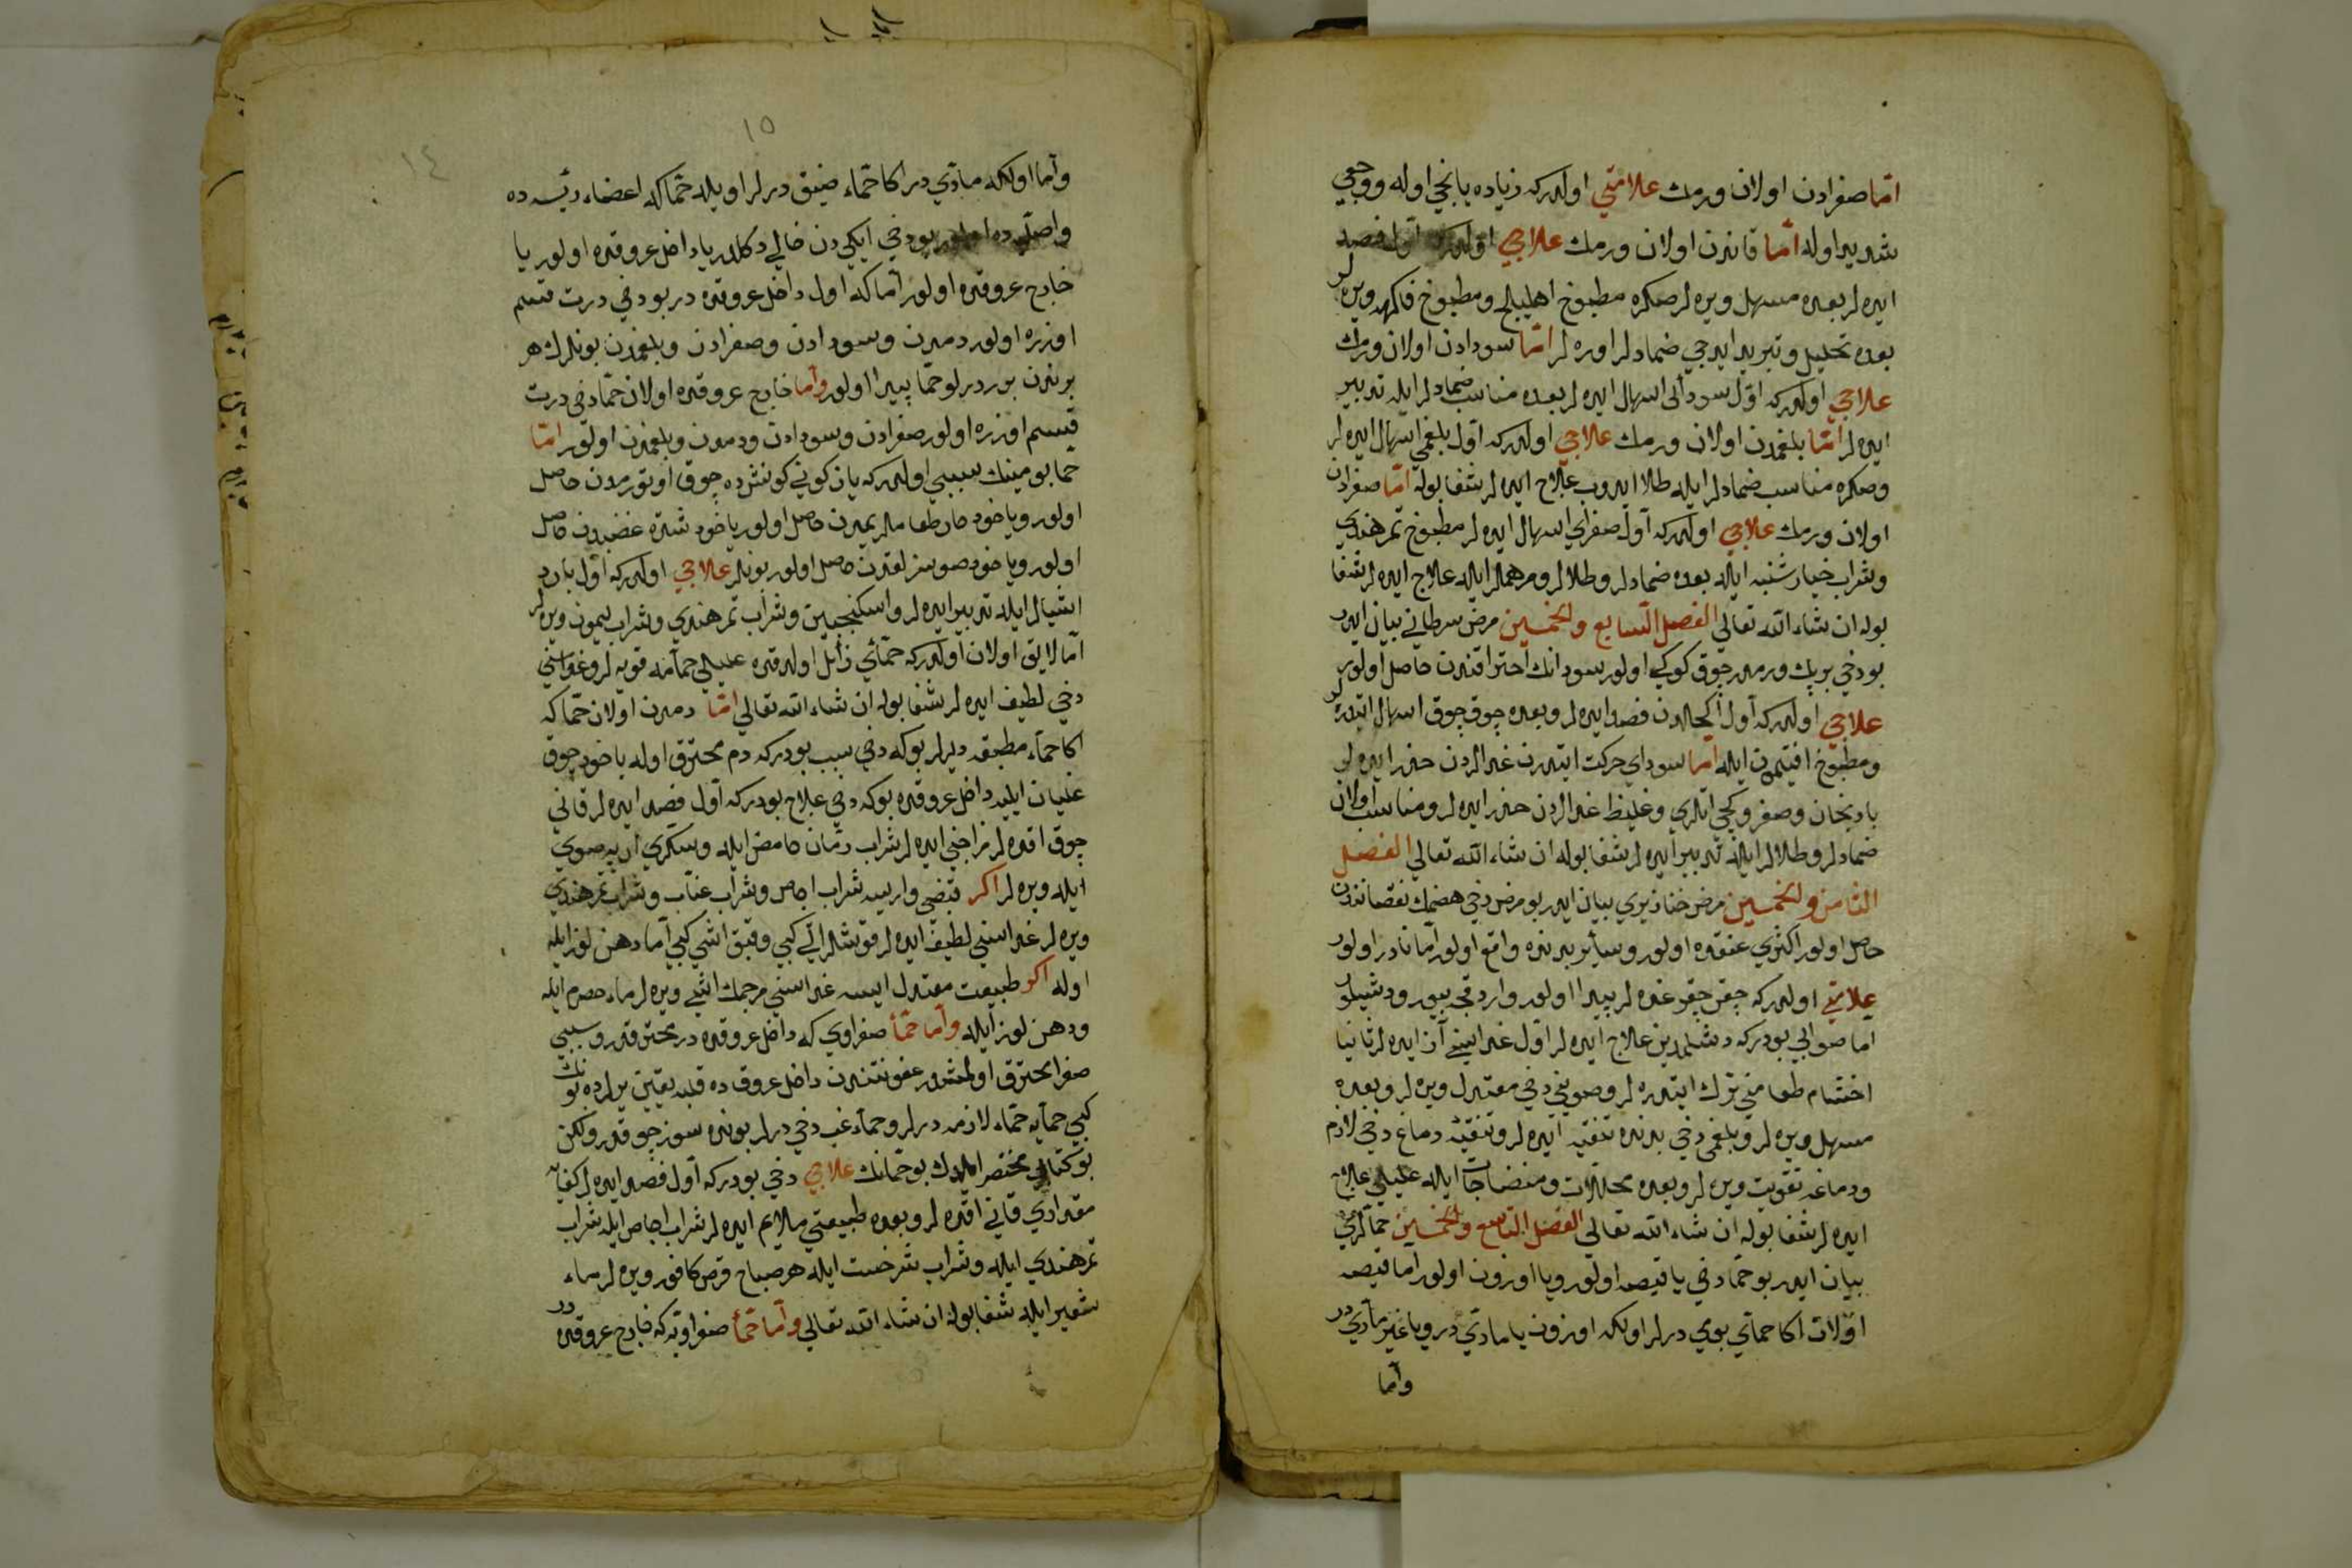 اما صفرادن اولان ورمك علامتي اولدركه زياده يانيجي اوله ووجعي
شديد اوله اما قاندن اولان ورمك علاجي اولدركه اول فصد
ايده لر بعده مسهل ويره لر صكره مطبوخ اهليلج ومطبوخ فاكهه ويره لر
بعده تحليل وتبريد ايدجي ضمادلر اوره لر اما سودادن اولان ورمك
علاجي اولدركه اول سودائى اسهال ايده لر بعده مناسب ضمادلر ايله تدبير
ايده لر اما بلغمدن اولان ورمك علاجي اولدركه اول بلغمي اسهال ايده لر
وصكره مناسب ضمادلر ايله طلا ايدوب علاج ايده لر شفا بوله اما صفرادن
اولان ورمك علاجي اولدركه اول صفرائي اسهال ايده لر مطبوخ تمرهندي
وشراب خيارشنبه ايله بعده ضمادلر وطلالر ومرهملر ايله علاج ايده لر شفا
بوله ان شاء الله تعالي الفصل السابع والخمسين مرض سرطاني بيان ايدر
بو دخي بر پك ورمدر چوق كوكلي اولور سودانك احتراقندن حاصل اولور
علاجي اولدركه اول اكحلدن فصد ايده لر وبعده چوق چوق اسهال ايتدره لر
ومطبوخ افتيمون ايله اما سوداي حركت ايتدرن غدالردن حذر ايده لر
بادنجان وصغر وكچي اتلري وغليظ غدالردن حذر ايده لر ومناسب اولان
ضمادلر وطلالر ايله تدبير ايده لر شفا بوله ان شاء الله تعالي الفصل
الثامن والخمسين مرض خنازيري بيان ايدر بو مرض دخي هضمك نقصانندن
حاصل اولور اكثري عنقده اولور وسائر بدنده واقع اولور اما نادر اولور
علامتي اولدركه چقر چقر غده لر پيدا اولور واردقجه بيور ودشيلور
اما صوابي بودركه دشلمدين علاج ايده لر اول غداسني آز ايده لر ثانيا
اخشام طعامني ترك ايتدره لر وصويني دخي معتدل ويره لر وبعده
مسهل ويره لر وبلغمي دخي بدنده تنقيه ايده لر وتنقيه دماغ دخي لازم
ودماغه تقويت ويره لر وبعده محللات ومنضجات ايله عليلي علاج
ايده لر شفا بوله ان شاء الله تعالي الفصل التاسع والخمسين حمالري
بيان ايدر بو حما دخي يا قيصه اولور ويا اوزون اولور اما قيصه
اولان اكا حمائي يومي درلر اولكه اوزون يا مادي در ويا غير مادي در
واما
١٥
١٤
واما اولكه مادي در اكا حماء ضيق درلر اويله حما كه اعضاء رئيسه ده
واصليه ده اولور بو دخي ايكيدن خالي دكلدر يا داخل عروقده اولور يا
خارج عروقده اولور اما كه اول داخل عروقده در بو دخي درت قسم
اوزره اولور دمدن وسودادن وصفرادن وبلغمدن بونلرك هر
برندن بر درلو حما پيدا اولور واما خارج عروقده اولان حما دخي درت
قسم اوزره اولور صفرادن وسودادن ودمدن وبلغمدن اولور اما
حما يومينك سببي اولدركه ياز كوني كونشده چوق اوتورمدن حاصل
اولور ويا خود حار طعاملر يمدن حاصل اولور يا خود شدة غضبدن حاصل
اولور ويا خود صوسزلقدن حاصل اولور بونلر علاجي اولدركه اول بارد
اشيالر ايله تدبير ايده لر واسكنجبين وشراب تمرهندي وشراب ليمون ويره لر
اما لايق اولان اولدركه حمائي زائل اولدقده عليلي حمامه قويه لر وغداسني
دخي لطيف ايده لر شفا بوله ان شاء الله تعالي اما دمدن اولان حما كه
اكا حماء مطبقه ديرلر بوكه دخي سبب بودركه دم محترق اوله يا خود چوق
غليان ايليه داخل عروقده بوكه دخي علاج بودركه اول فصد ايده لر قاني
چوق اقده لر مزاجني ايده لر شراب رمان حامض ايله وسكري ارپه صويي
ايله ويره لر اكر قبضي وار ايسه شراب اجاص وشراب عناب وشراب تمرهندي
ويره لر غداسني لطيف ايده لر قوش اتي كبي وقبق اشي كبي اما دهن لوز ايله
اوله اكر طبيعت معتدل ايسه غداسني مرجمك اشي ويره لر ماء حصرم ايله
ودهن لوز ايله واما حما صفراوي كه داخل عروقده در محترقدر وسببي
صفرا محترق اولمشدر عفونتندن داخل عروقده قلبه يقين يرلرده بونك
كبي حمايه حماء لازمه درلر وحماء غب دخي درلر بونده سوز چوقدر ولكن
بو كتابي مختصر ايلدك بو حمانك علاجي دخي بودركه اول فصد ايده لر كفايه
مقداري قاني اقده لر وبعده طبيعتي ملايم ايده لر شراب اجاص ايله شراب
تمرهندي ايله وشراب شرخشت ايله هر صباح قرص كافور ويره لر ماء
شعير ايله شفا بوله ان شاء الله تعالي واما حما صفراويه كه خارج عروقده در